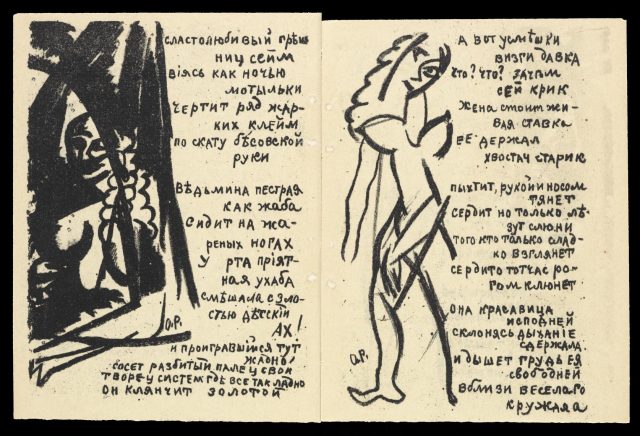 сластолюбивый грѣш
ниц сейм
віясь как ночью
мотыльки
чертит ряд жар-
ких клейм
по скату бѣсовской
руки
Вѣдьмина пестрая
как жаба
сидит на жа-
реных ногах
у рта пріят-
ная ухаба
смѣшала с зло-
стью дѣтскій
Ах!
и проигравшийся тут
жадно
сосет разбитый палец свой
творец систем где все так ладно
он клянчит золотой
А.Р.
А вот усмѣшки
визги давка
что? что? зачѣм
сей крик
жена стоит жи-
вая ставка
еѣ держал
хвостач старик
пыхтит, рукой и носом
тянет
сердит но только лѣ-
зут слюни
того кто только слад-
ко взглянет
сердито тотчас ро-
гом клюнет
она красавица
исподней
склонясь дыханіе
сдержала
и дышет грудь ея
свободней
вблизи веселаго
кружала
А.Р.